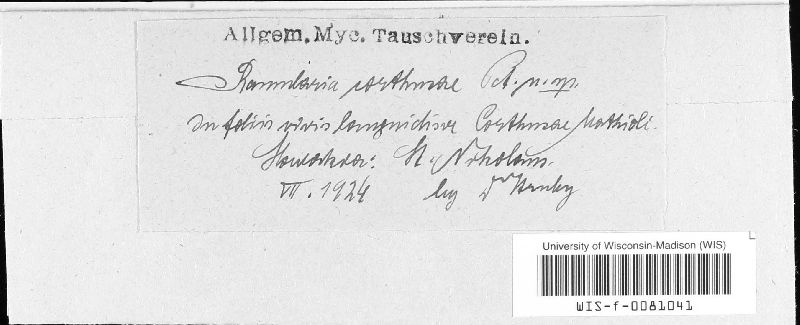 Allgem. Myc. Tauschverein.
Ramularia corthusae Pet. n. sp.
In foliis vivis languidisve Corthusae Mathioli.
Slowakia: St. Nikolaus.
VII. 1924 leg Dr Hruby
University of Wisconsin-Madison (WIS)
WIS-f-0081041